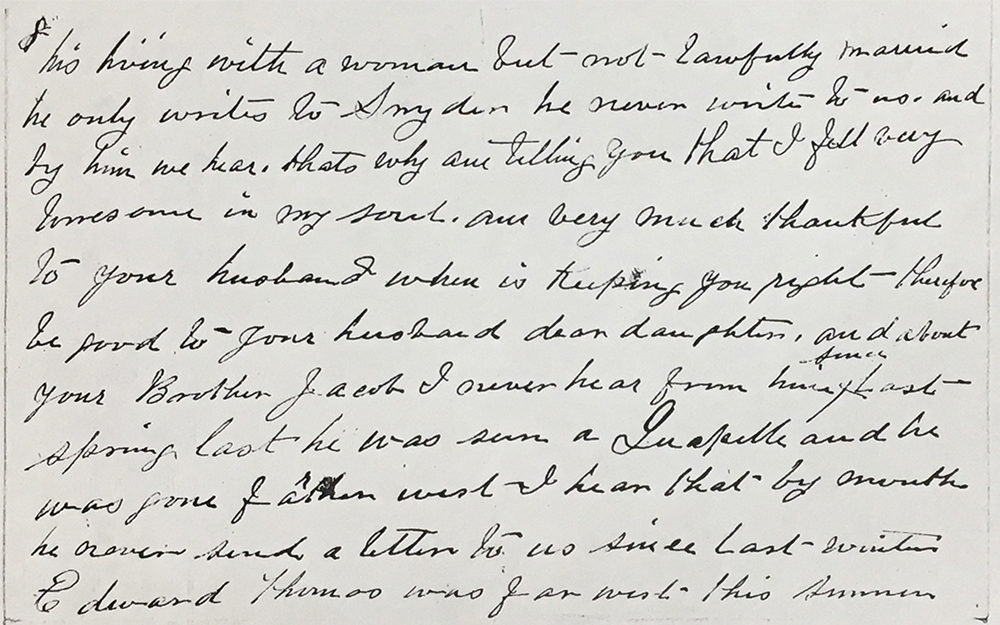 8
his living with a woman but not lawfully married
he only writes to Snyder he never write to us. and
by him we hear. thats why am telling you that I fell very
lonesome in my soul. am very much thankful
to your husband when is keeping you right therefore
be good to your husband dear daughter. and about
your Brother Jacob I never hear from him since last
spring last he was seen a Quapelle and he
was gone farther west I hear that by mouth
he never send a letter to us since last winter
Edward Thomas was far west this summer